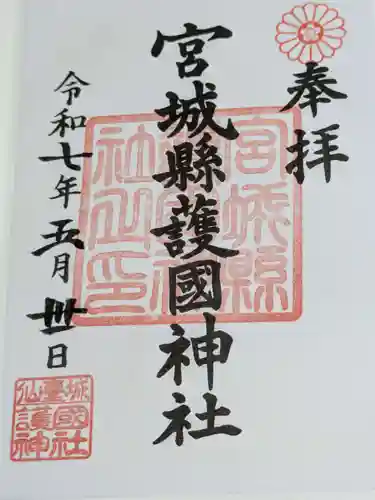 奉拝
宮城縣護國神社
宮城縣護國神社之印
令和七年五月卅日
仙臺城
護國
神社